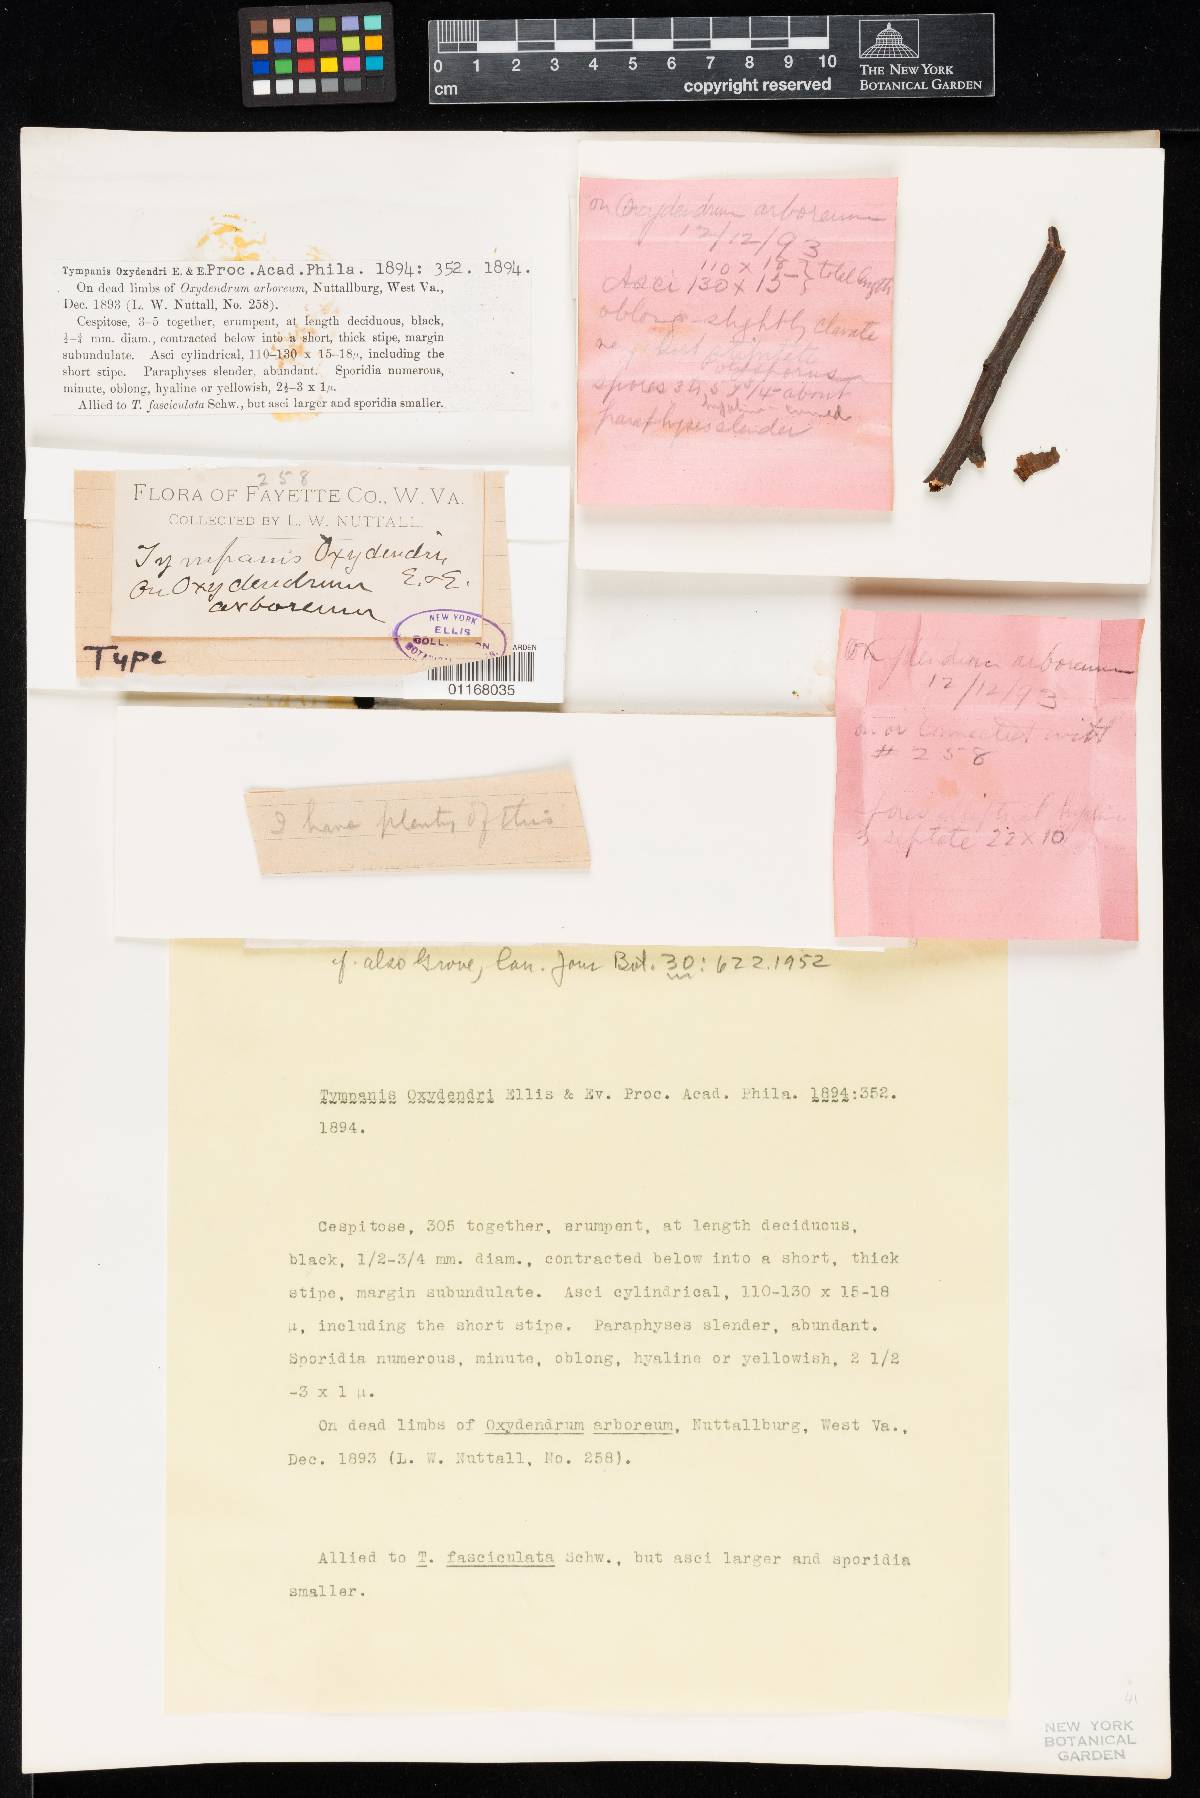 0 1 2 3 4 5 6 7 8 9 10
cm
copyright reserved
THE NEW YORK
BOTANICAL GARDEN
Tympanis Oxydendri E. & E. Proc. Acad. Phila. 1894: 352. 1894.
On dead limbs of Oxydendrum arboreum, Nuttallburg, West Va.,
Dec. 1893 (L. W. Nuttall, No. 258).
Cespitose, 3–5 together, erumpent, at length deciduous, black,
½–¾ mm. diam., contracted below into a short, thick stipe, margin
subundulate. Asci cylindrical, 110–130 x 15–18µ, including the
short stipe. Paraphyses slender, abundant. Sporidia numerous,
minute, oblong, hyaline or yellowish, 2½–3 x 1µ.
Allied to T. fasciculata Schw., but asci larger and sporidia smaller.
on Oxydendrum arboreum
12/12/93
110 x 18
Asci 130 x 15 } total length
oblong slightly clavate
spores
about
hyaline curved
paraphyses slender
258
FLORA OF FAYETTE CO., W. VA.
COLLECTED BY L. W. NUTTALL.
Tympanis Oxydendri
E. & E.
On Oxydendrum
arboreum
NEW YORK
ELLIS
COLL
N
Type
ARDEN
01168035
arboreum
12/12/93
on or connected with
# 258
3 septate 22 x 10
I have plenty of this
cf. also Grove, Can. Jour Bot. 30: 622. 1952
Tympanis Oxydendri Ellis & Ev. Proc. Acad. Phila. 1894:352.
1894.
Cespitose, 305 together, erumpent, at length deciduous,
black, 1/2-3/4 mm. diam., contracted below into a short, thick
stipe, margin subundulate. Asci cylindrical, 110-130 x 15-18
µ, including the short stipe. Paraphyses slender, abundant.
Sporidia numerous, minute, oblong, hyaline or yellowish, 2 1/2
-3 x 1 µ.
On dead limbs of Oxydendrum arboreum, Nuttallburg, West Va.,
Dec. 1893 (L. W. Nuttall, No. 258).
Allied to T. fasciculata Schw., but asci larger and sporidia
smaller.
41
NEW YORK
BOTANICAL
GARDEN